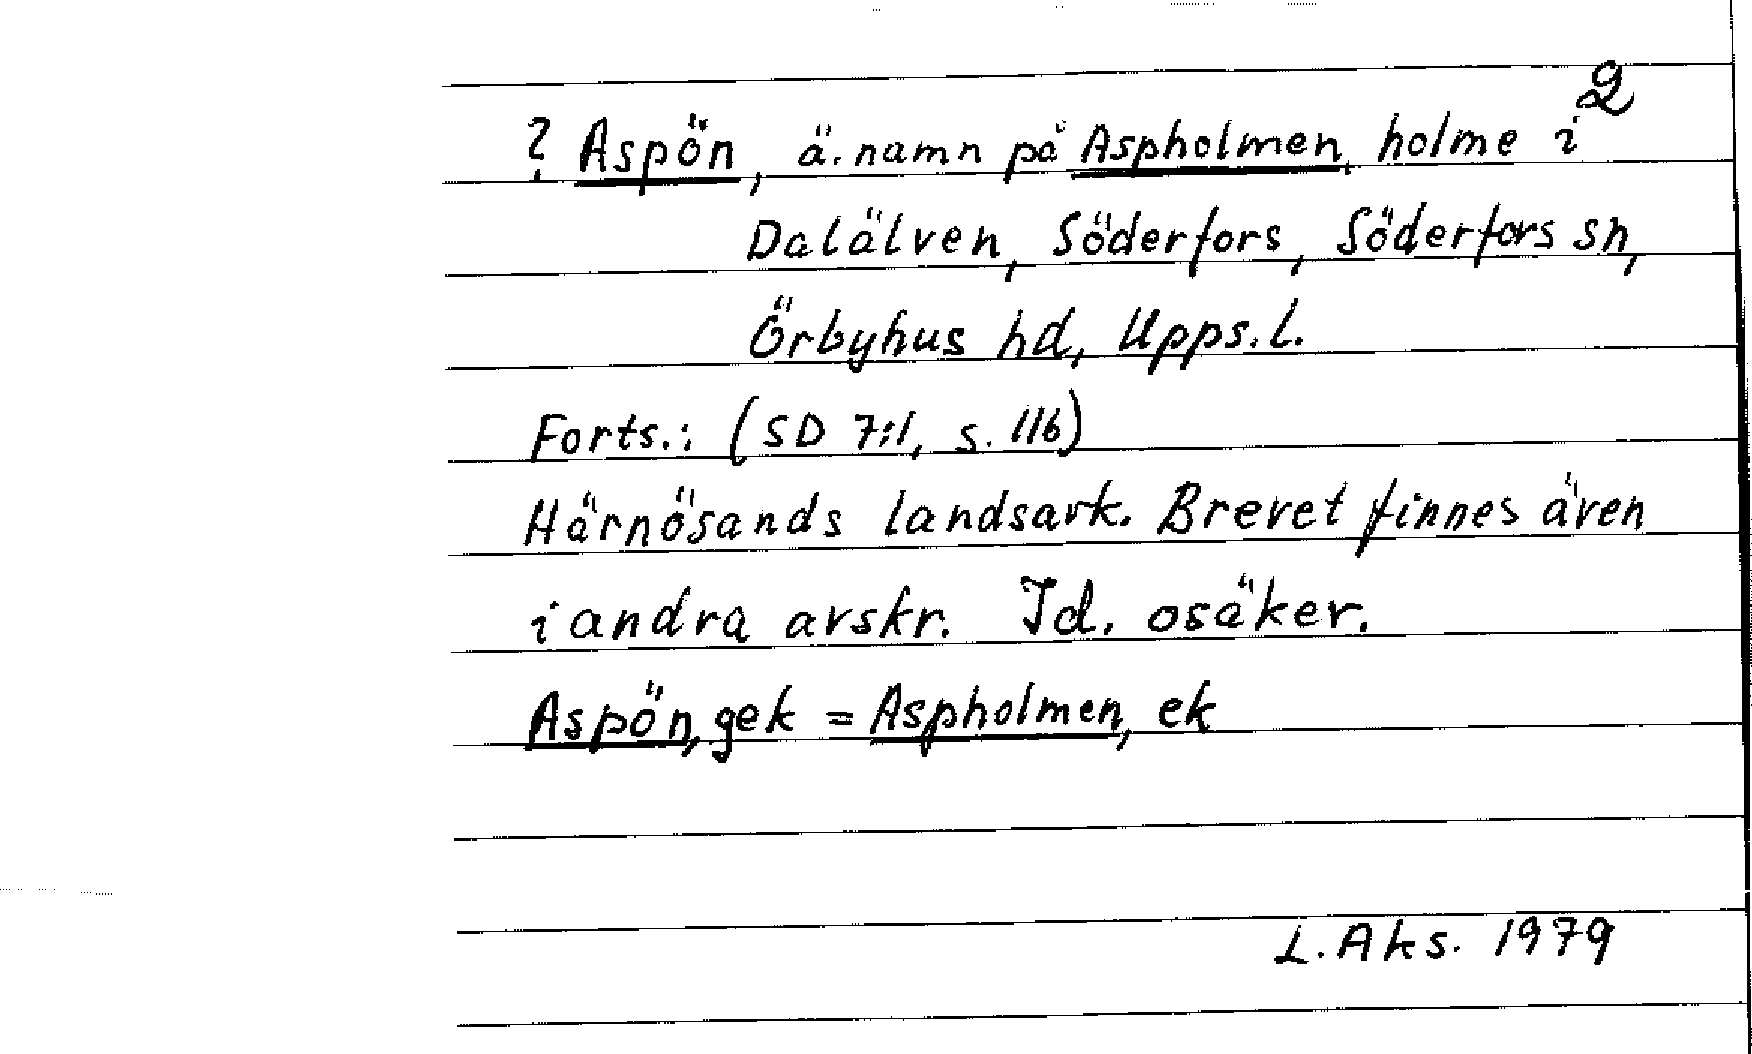 2
? Aspön, ä. namn på Aspholmen, holme i
Dalälven, Söderfors, Söderfors sn,
Örbyhus hd, Upps. l.
Forts.: (SD 7:1, s. 116)
Härnösands landsark. Brevet finnes även
i andra avskr. Id. osäker.
Aspön, gek = Aspholmen, ek
L. Aks. 1979